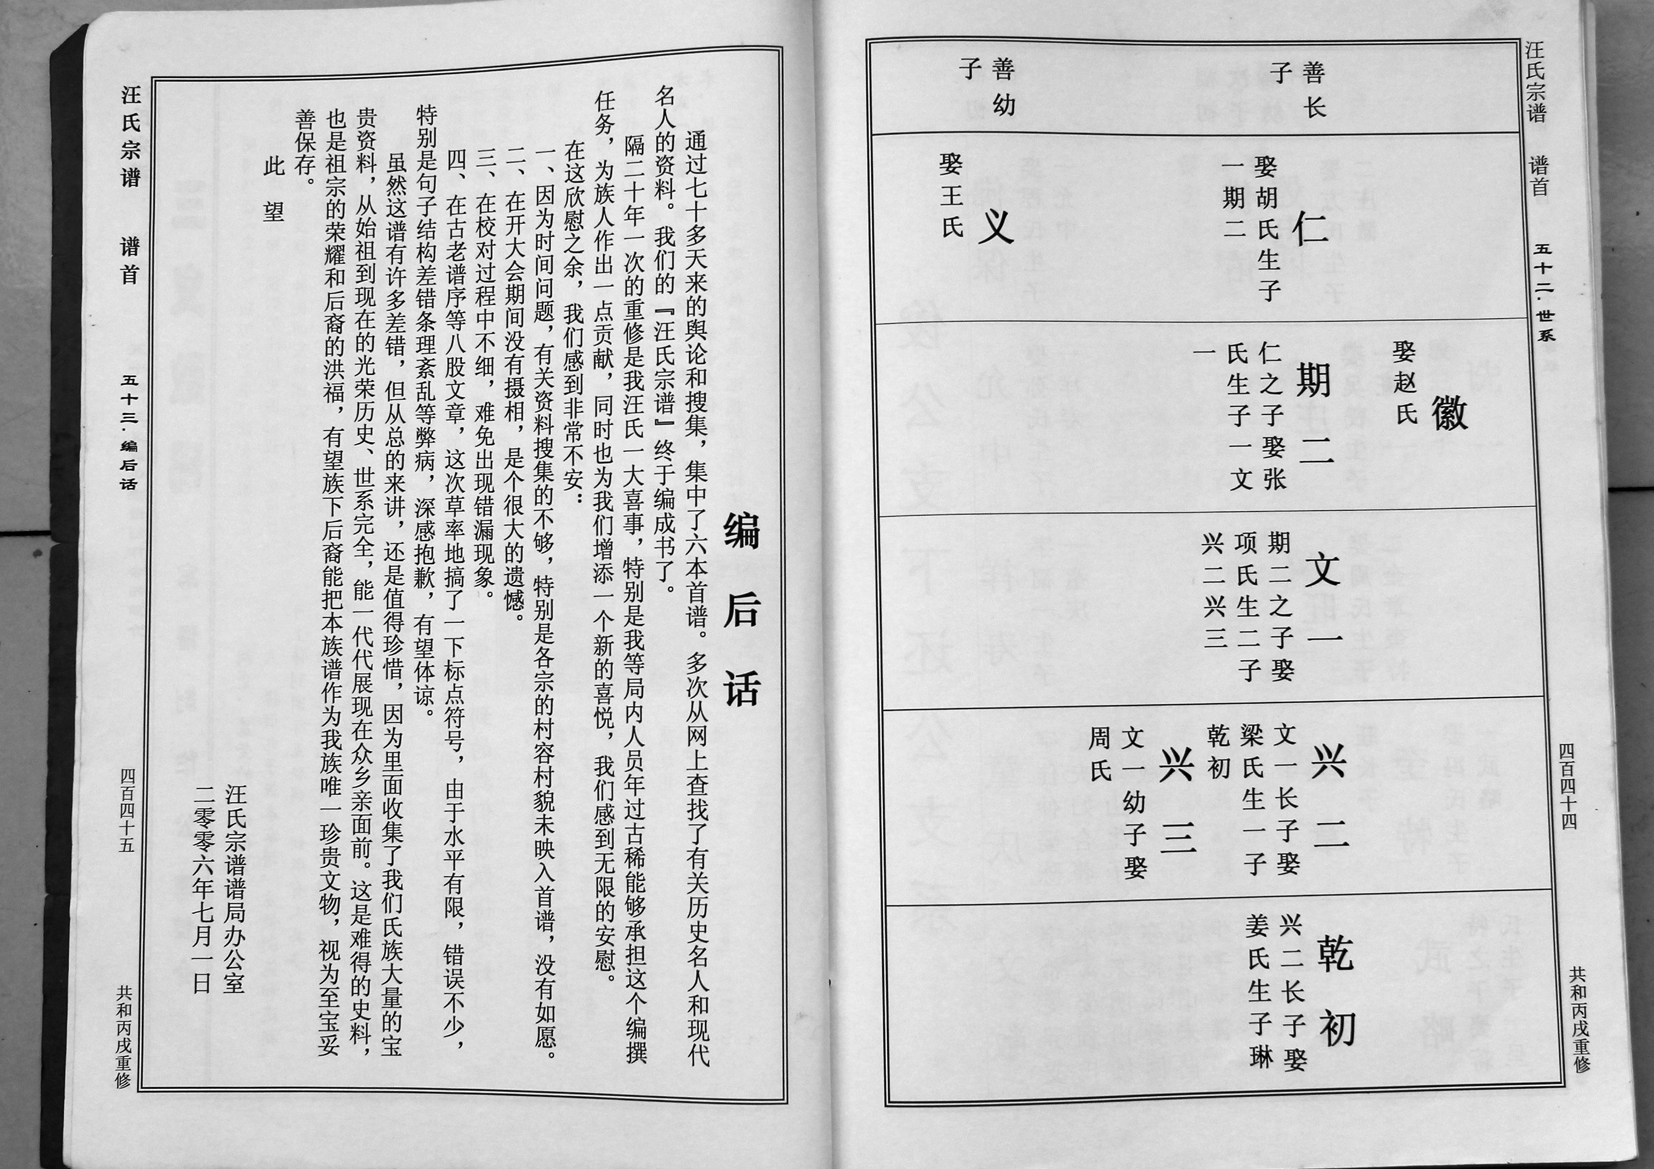 汪氏宗谱 谱首 五十二·世系 四百四十四 共和丙戌重修
善长
子
仁
娶胡氏生子
一期二
善幼
子
义
娶王氏
徽
娶赵氏
期二
仁之子娶张
氏生子一文
一
文一
期二之子娶
项氏生二子
兴二兴三
兴二
文一长子娶
梁氏生一子
乾初
兴三
文一幼子娶
周氏
乾初
兴二长子娶
姜氏生子琳
编后话
通过七十多天来的舆论和搜集，集中了六本首谱。多次从网上查找了有关历史名人和现代
名人的资料。我们的『汪氏宗谱』终于编成书了。
隔二十年一次的重修是我汪氏一大喜事，特别是我等局内人员年过古稀能够承担这个编撰
任务，为族人作出一点贡献，同时也为我们增添一个新的喜悦，我们感到无限的安慰。
在这欣慰之余，我们感到非常不安：
一、因为时间问题，有关资料搜集的不够，特别是各宗的村容村貌未映入首谱，没有如愿。
二、在开大会期间没有摄相，是个很大的遗憾。
三、在校对过程中不细，难免出现错漏现象。
四、在古老谱序等八股文章，这次草率地搞了一下标点符号，由于水平有限，错误不少，
特别是句子结构差错条理紊乱等弊病，深感抱歉，有望体谅。
虽然这谱有许多差错，但从总的来讲，还是值得珍惜，因为里面收集了我们氏族大量的宝
贵资料，从始祖到现在的光荣历史、世系完全，能一代代展现在众乡亲面前。这是难得的史料，
也是祖宗的荣耀和后裔的洪福，有望族下后裔能把本族谱作为我族唯一珍贵文物，视为至宝妥
善保存。
此望
汪氏宗谱谱局办公室
二零零六年七月一日
汪氏宗谱 谱首 五十三·编后话 四百四十五 共和丙戌重修